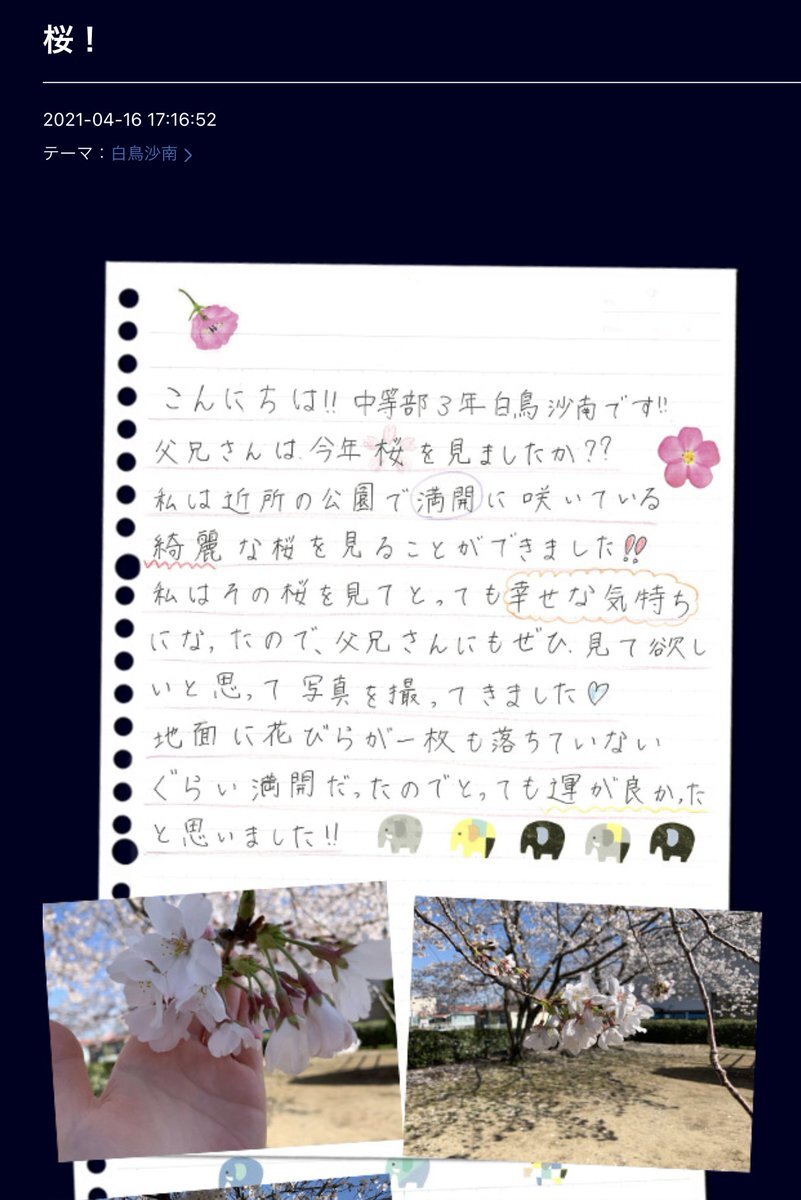 桜！
2021-04-16 17:16:52
テーマ：白鳥沙南
こんにちは!! 中等部3年白鳥沙南です!!
父兄さんは今年桜を見ましたか??
私は近所の公園で満開に咲いている
綺麗な桜を見ることができました!!
私はその桜を見てとっても幸せな気持ち
になったので、父兄さんにもぜひ見て欲し
いと思って写真を撮ってきました♡
地面に花びらが一枚も落ちていない
ぐらい満開だったのでとっても運が良かった
と思いました!!